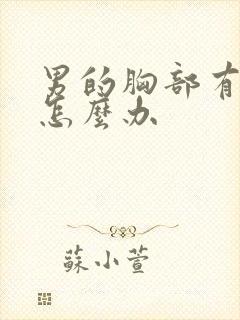 男的胸部有
怎麼办
蘇小萱